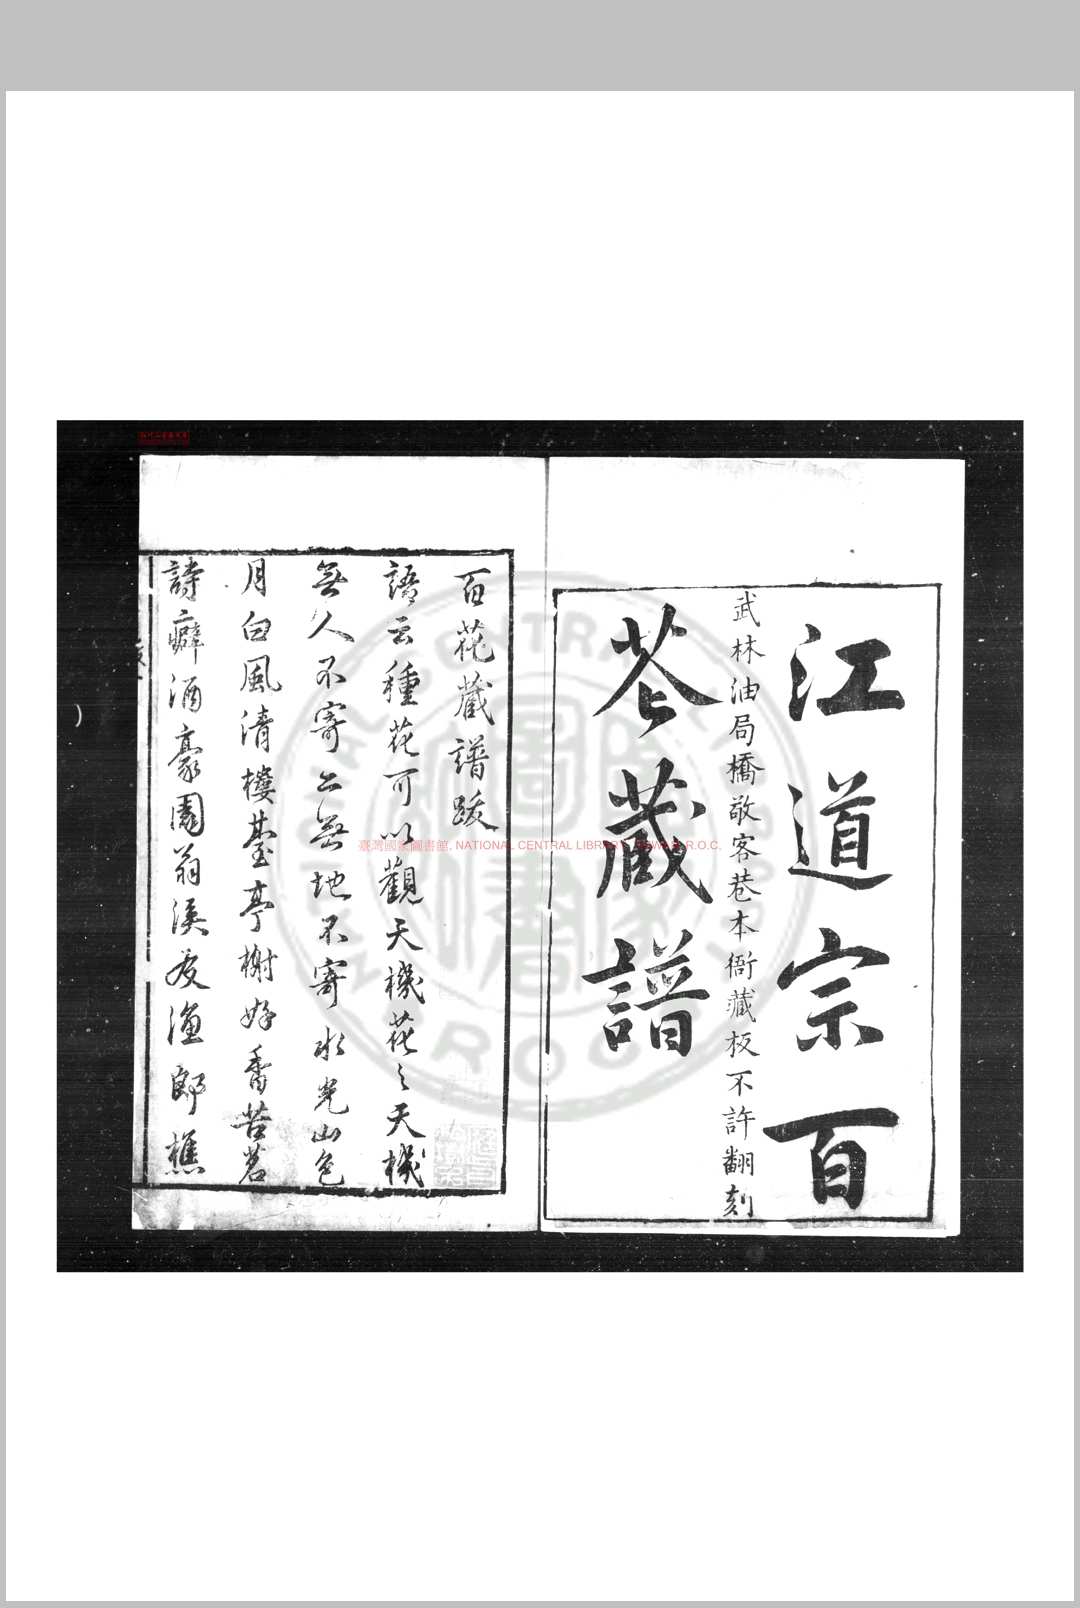 江道宗百
武林油局橋敬客巷本衙藏板不許翻刻
花藏譜
百花藏譜跋
語云種花可以觀天機花之天機
無人不寄亦無地不寄水光山色
月白風清樓臺亭榭妙香苦茗
詩癖酒豪園翁溪友漁郎樵
臺灣國家圖書館, NATIONAL CENTRAL LIBRARY, TAIWAN, R.O.C.